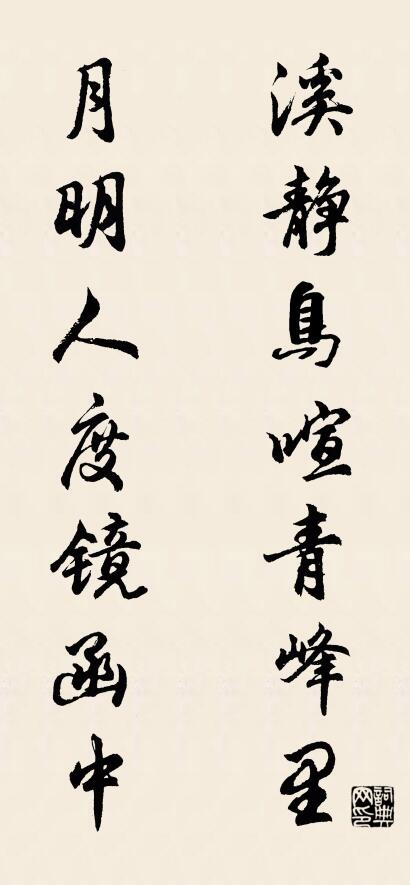 溪静鸟喧青峰里
月明人度镜函中
詞典网印